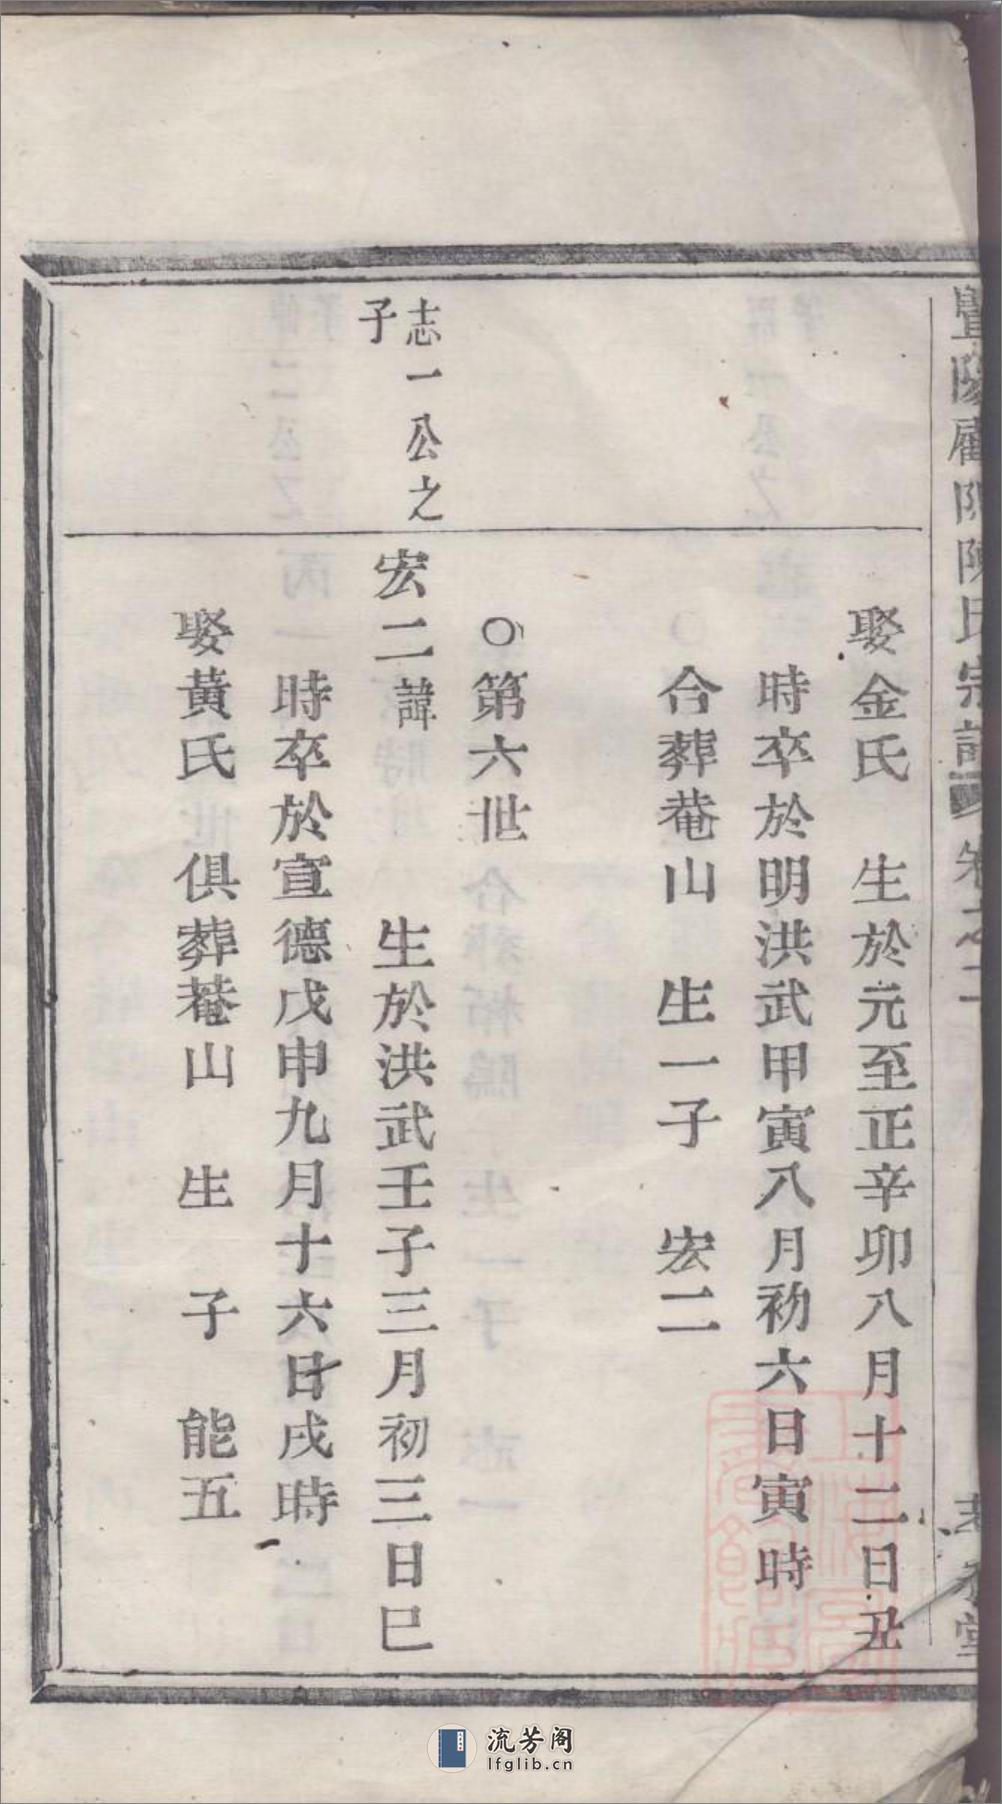 娶金氏　生於元至正辛卯八月十二日丑
時卒於明洪武甲寅八月初六日寅時
合葬菴山　生一子　宏二
○第六世
志一公之
子
宏二諱　　　生於洪武壬子三月初三日巳
時卒於宣德戊申九月十六日戌時
娶黃氏　俱葬菴山　生　子　能五
陳氏宗譜　卷之二
堂
流芳阁
lfglib.cn